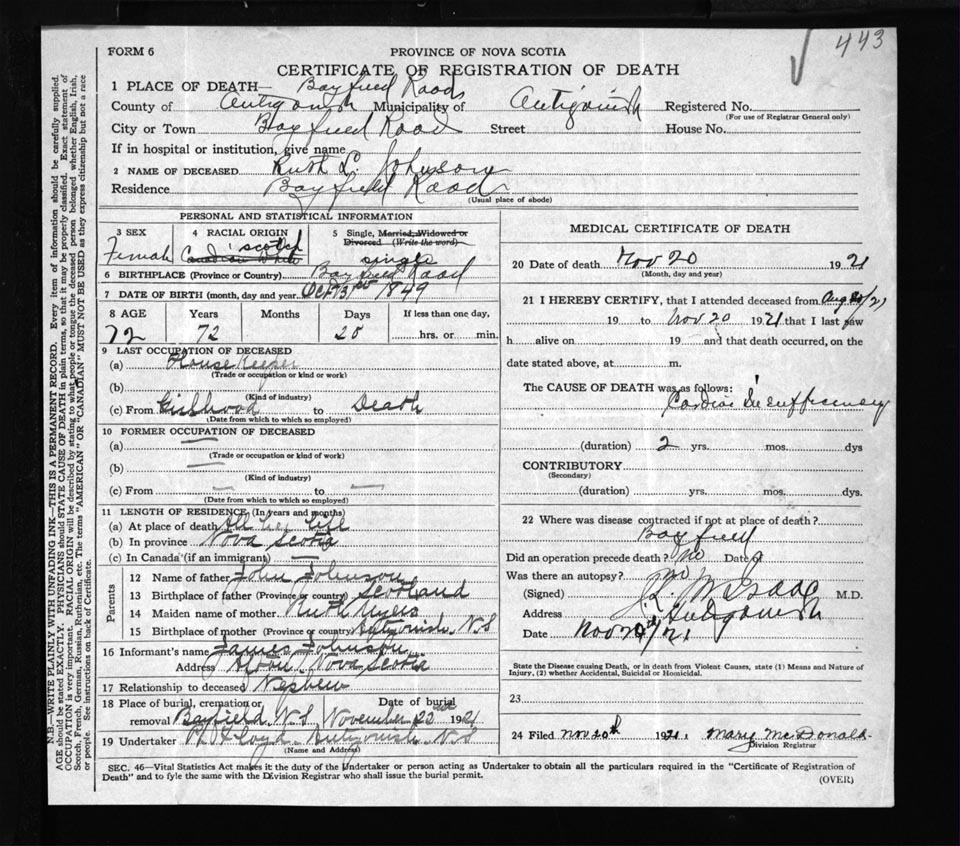 443
FORM 6
PROVINCE OF NOVA SCOTIA
CERTIFICATE OF REGISTRATION OF DEATH
1 PLACE OF DEATH— Bayfield Road
County of Antigonish Municipality of Antigonish Registered No.
(For use of Registrar General only)
City or Town Bayfield Road Street House No.
If in hospital or institution, give name
2 NAME OF DECEASED Ruth L. Johnson
Residence Bayfield Road
(Usual place of abode)
PERSONAL AND STATISTICAL INFORMATION
3 SEX Female
4 RACIAL ORIGIN Scotch
Canadian White
5 Single, Married, Widowed or Divorced (Write the word) single
6 BIRTHPLACE (Province or Country) Bayfield Road
7 DATE OF BIRTH (month, day and year) Oct 31st 1849
8 AGE Years Months Days If less than one day,
72 72 20 hrs. or min.
9 LAST OCCUPATION OF DECEASED
(a) House Keeper
(Trade or occupation or kind of work)
(b)
(Kind of industry)
(c) From Girlhood to Death
(Date from which to which so employed)
10 FORMER OCCUPATION OF DECEASED
(a) —
(Trade or occupation or kind of work)
(b) —
(Kind of industry)
(c) From — to —
(Date from which to which so employed)
11 LENGTH OF RESIDENCE (In years and months)
(a) At place of death All her life
(b) In province Nova Scotia
(c) In Canada (if an immigrant) —
Parents
12 Name of father John Johnson
13 Birthplace of father (Province or country) Scotland
14 Maiden name of mother Ruth Myers
15 Birthplace of mother (Province or country) Antigonish N.S
16 Informant's name James Johnson
Address Afton Nova Scotia
17 Relationship to deceased Nephew
18 Place of burial, cremation or removal Bayfield N.S Date of burial November 22nd 1921
19 Undertaker Antigonish N.S
(Name and Address)
MEDICAL CERTIFICATE OF DEATH
20 Date of death Nov 20 1921
(Month, day and year)
21 I HEREBY CERTIFY, that I attended deceased from Aug /21
19 to Nov 20 1921 that I last saw
h alive on 19 and that death occurred, on the
date stated above, at m.
The CAUSE OF DEATH was as follows:
Cardiac Insufficiency
(duration) 2 yrs. mos. dys
CONTRIBUTORY
(Secondary)
(duration) yrs. mos. dys.
22 Where was disease contracted if not at place of death?
Bayfield
Did an operation precede death? No Date of
Was there an autopsy? No
(Signed) McIsaac M.D.
Address Antigonish
Date Nov /21
State the Disease causing Death, or in death from Violent Causes, state (1) Means and Nature of
Injury, (2) whether Accidental, Suicidal or Homicidal.
23
24 Filed Nov 20th 1921. Mary McDonald
Division Registrar
SEC. 46—Vital Statistics Act makes it the duty of the Undertaker or person acting as Undertaker to obtain all the particulars required in the "Certificate of Registration of
Death" and to fyle the same with the Division Registrar who shall issue the burial permit.
(OVER)
N.B.—WRITE PLAINLY WITH UNFADING INK—THIS IS A PERMANENT RECORD. Every item of information should be carefully supplied.
AGE should be stated EXACTLY. PHYSICIANS should STATE CAUSE OF DEATH in plain terms, so that it may be properly classified. Exact statement of
OCCUPATION is very important. RACIAL ORIGIN will be described by stating to what people or tongue the deceased person belonged whether English, Irish,
Scotch, French, German, Russian, Ruthenian, etc. The terms "AMERICAN" or "CANADIAN" MUST NOT BE USED as they express citizenship but not a race
or people. See instructions on back of Certificate.